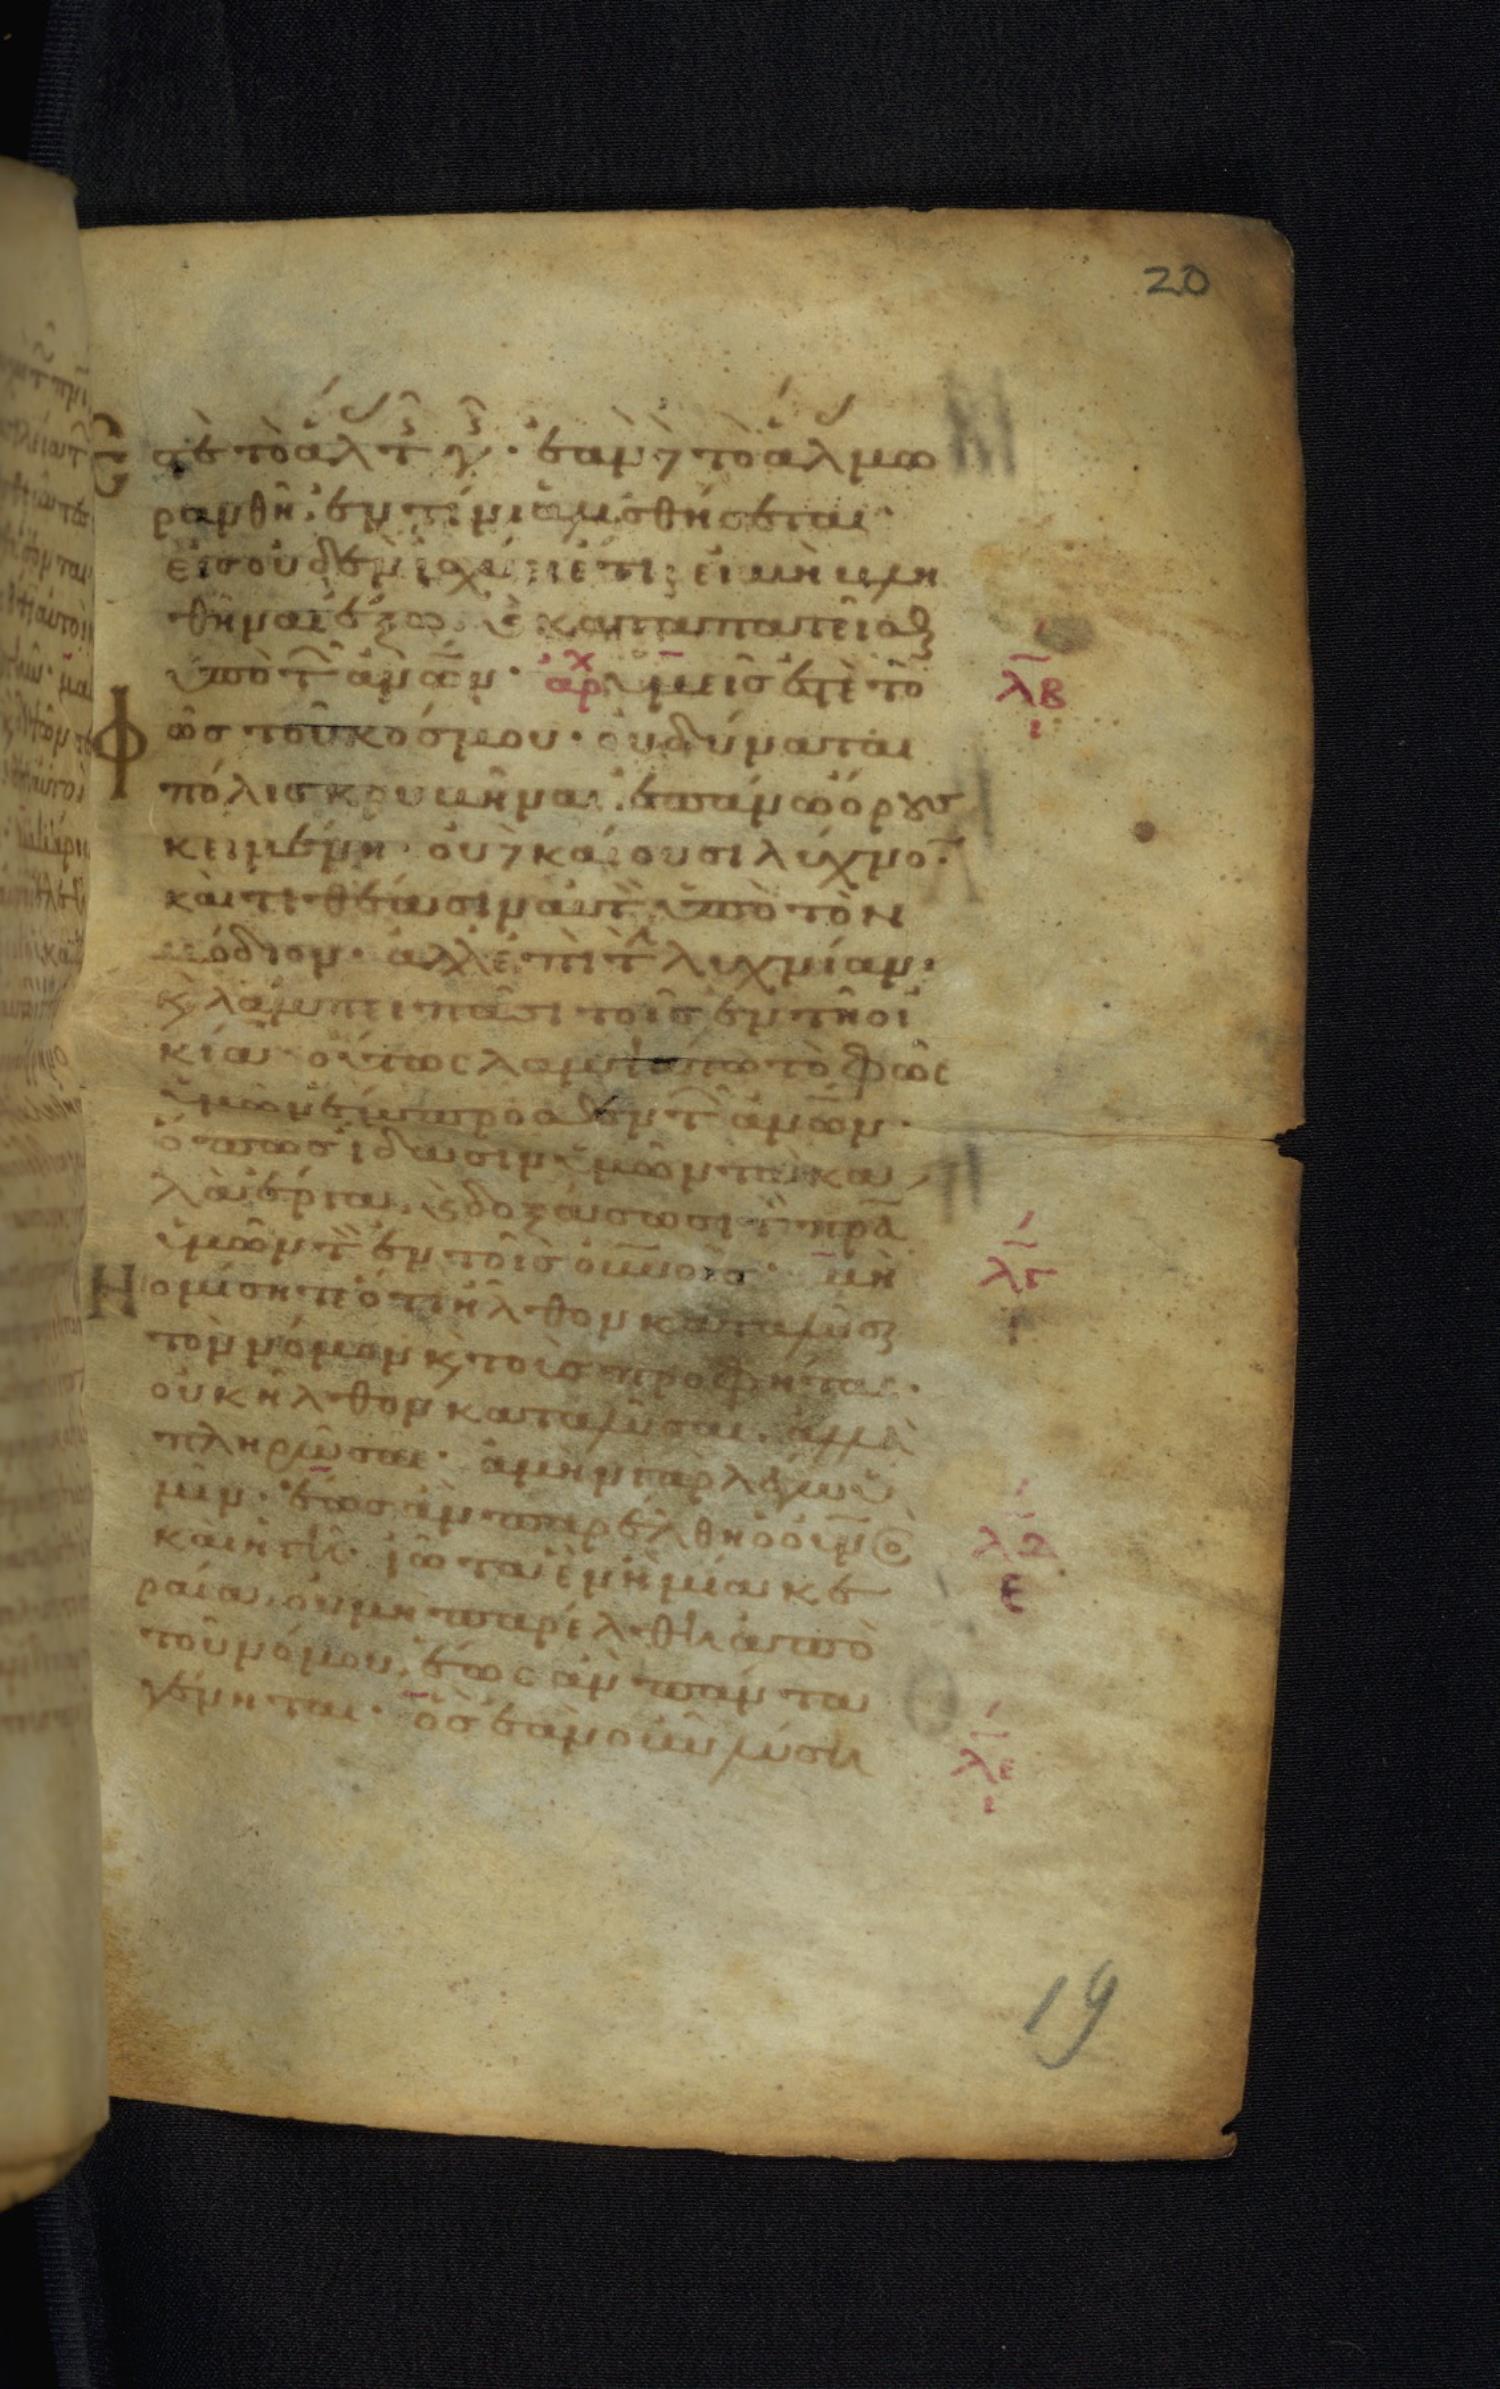 20
ἐστὲ τὸ ἅλ τ γ· ἐὰν δὲ τὸ ἅλ μω
ρανθῆ, ἐν τίνι ἁλισθήσεται·
εἰσουδὲν ἰσχύει ἔτι, εἰ μὴ βλη
θῆναι ἔξω. ϗ καταπατεῖσθ
ὑπὸ τ ἀνων· ἀρχ ὑμεῖς ἐστὲ τὸ
λβ
ι
Φῶς τοῦ κόσμου· οὐ δύναται
πόλις κρυβῆναι, ἐπάνω ὄρους
κειμένη· οὐδὲ καίουσι λύχνον·
καὶ τιθέασιν αὐτ ὑπὸ τὸν
μόδιον· ἀλλ ἐπὶ τ λυχνίαν·
ϗ λάμπει πᾶσι τοῖς ἐν τῆ οἰ
κία· οὕτως λαμψάτω τὸ φῶς
ὑμῶν ἔμπροσθεν τ ἀνων·
ὅπως ἴδωσιν ὑμῶν τὰ κα
λὰ ἔργα, ϗ δοξάσωσι τ πρα
ὑμῶν τ ἐν τοῖς οὐνοῖς· μὴ
λγ
ι
Νομίσητε ὅτι ἦλθον καταλῦσ
τὸν νόμον ϗ τοὺς προφήτας·
οὐκ ἦλθον καταλῦσαι. ἀλλὰ
πληρῶσαι· ἀμὴν γὰρ λέγω ὑ
μῖν· ἕως ἂν παρέλθη ὁ οὐνο
λδ
ε
καὶ ἡ γῆ· ἰῶτα ἓν ἢ μία κε
ραία, οὐ μὴ παρέλθη ἀπὸ
τοῦ νόμου, ἕως ἂν πάντα
γένηται· ὃς ἐὰν οὖν λύση
λε
ι
19